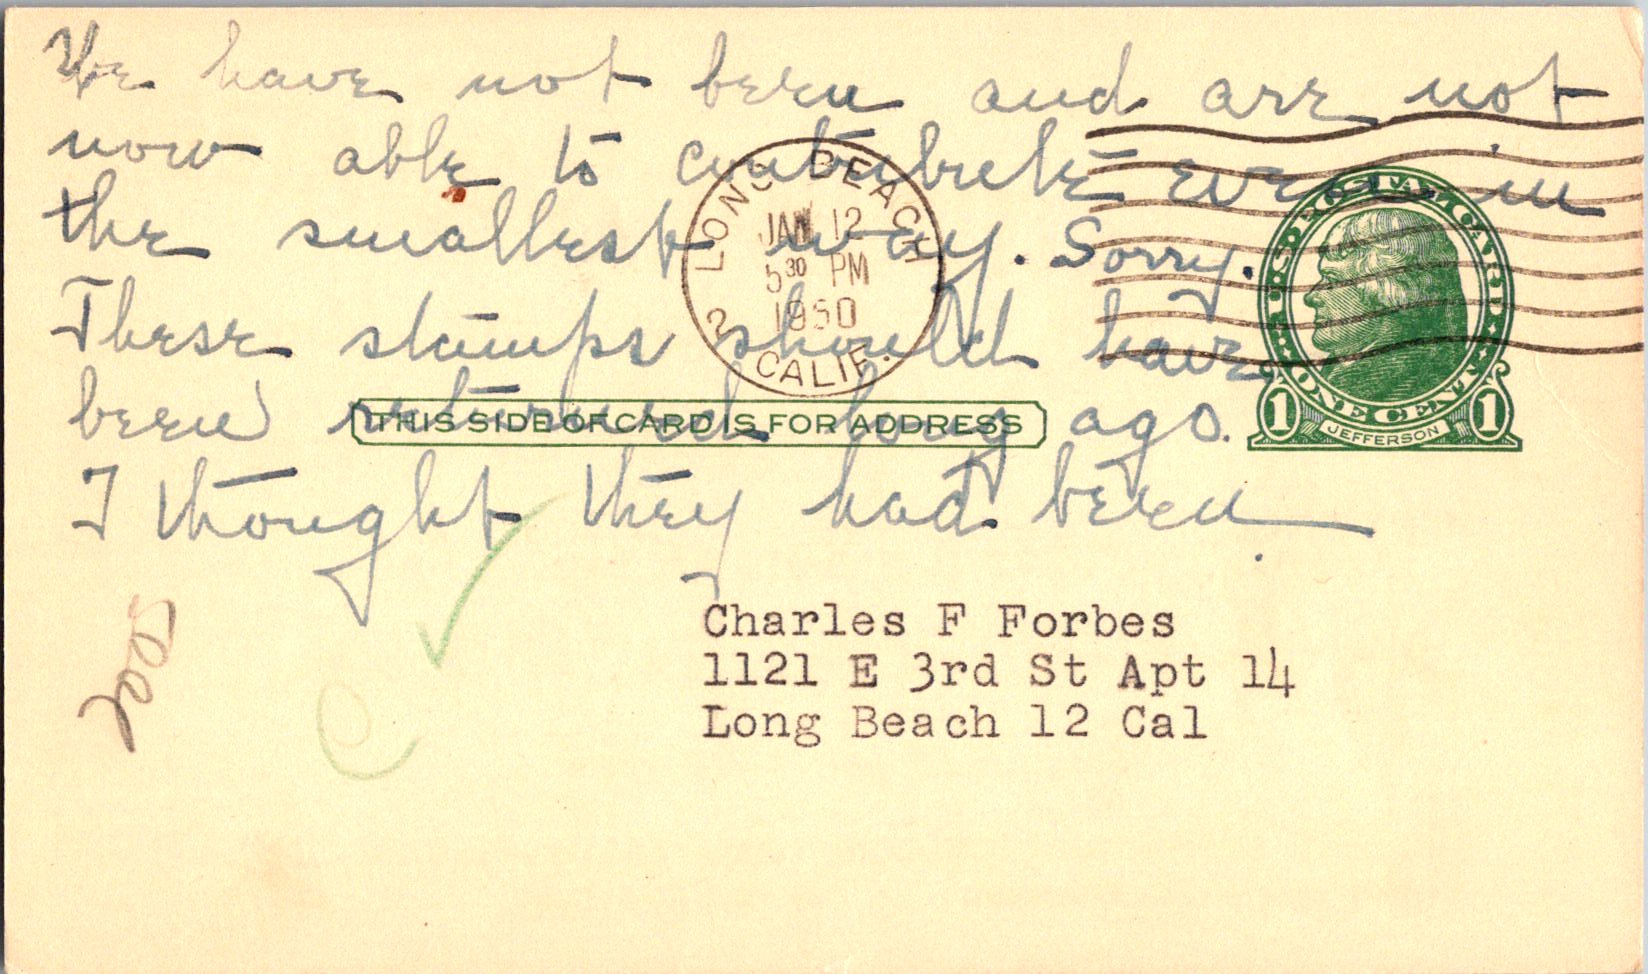 We have not been and are not
now able to contribute even in
the smallest way. Sorry.
These stamps should have
been returned long ago.
I thought they had been.
LONG BEACH
JAN 12
5 30 PM
1950
2 CALIF.
U.S. POSTAL CARD
ONE CENT
1 JEFFERSON 1
THIS SIDE OF CARD IS FOR ADDRESS
Charles F Forbes
1121 E 3rd St Apt 14
Long Beach 12 Cal